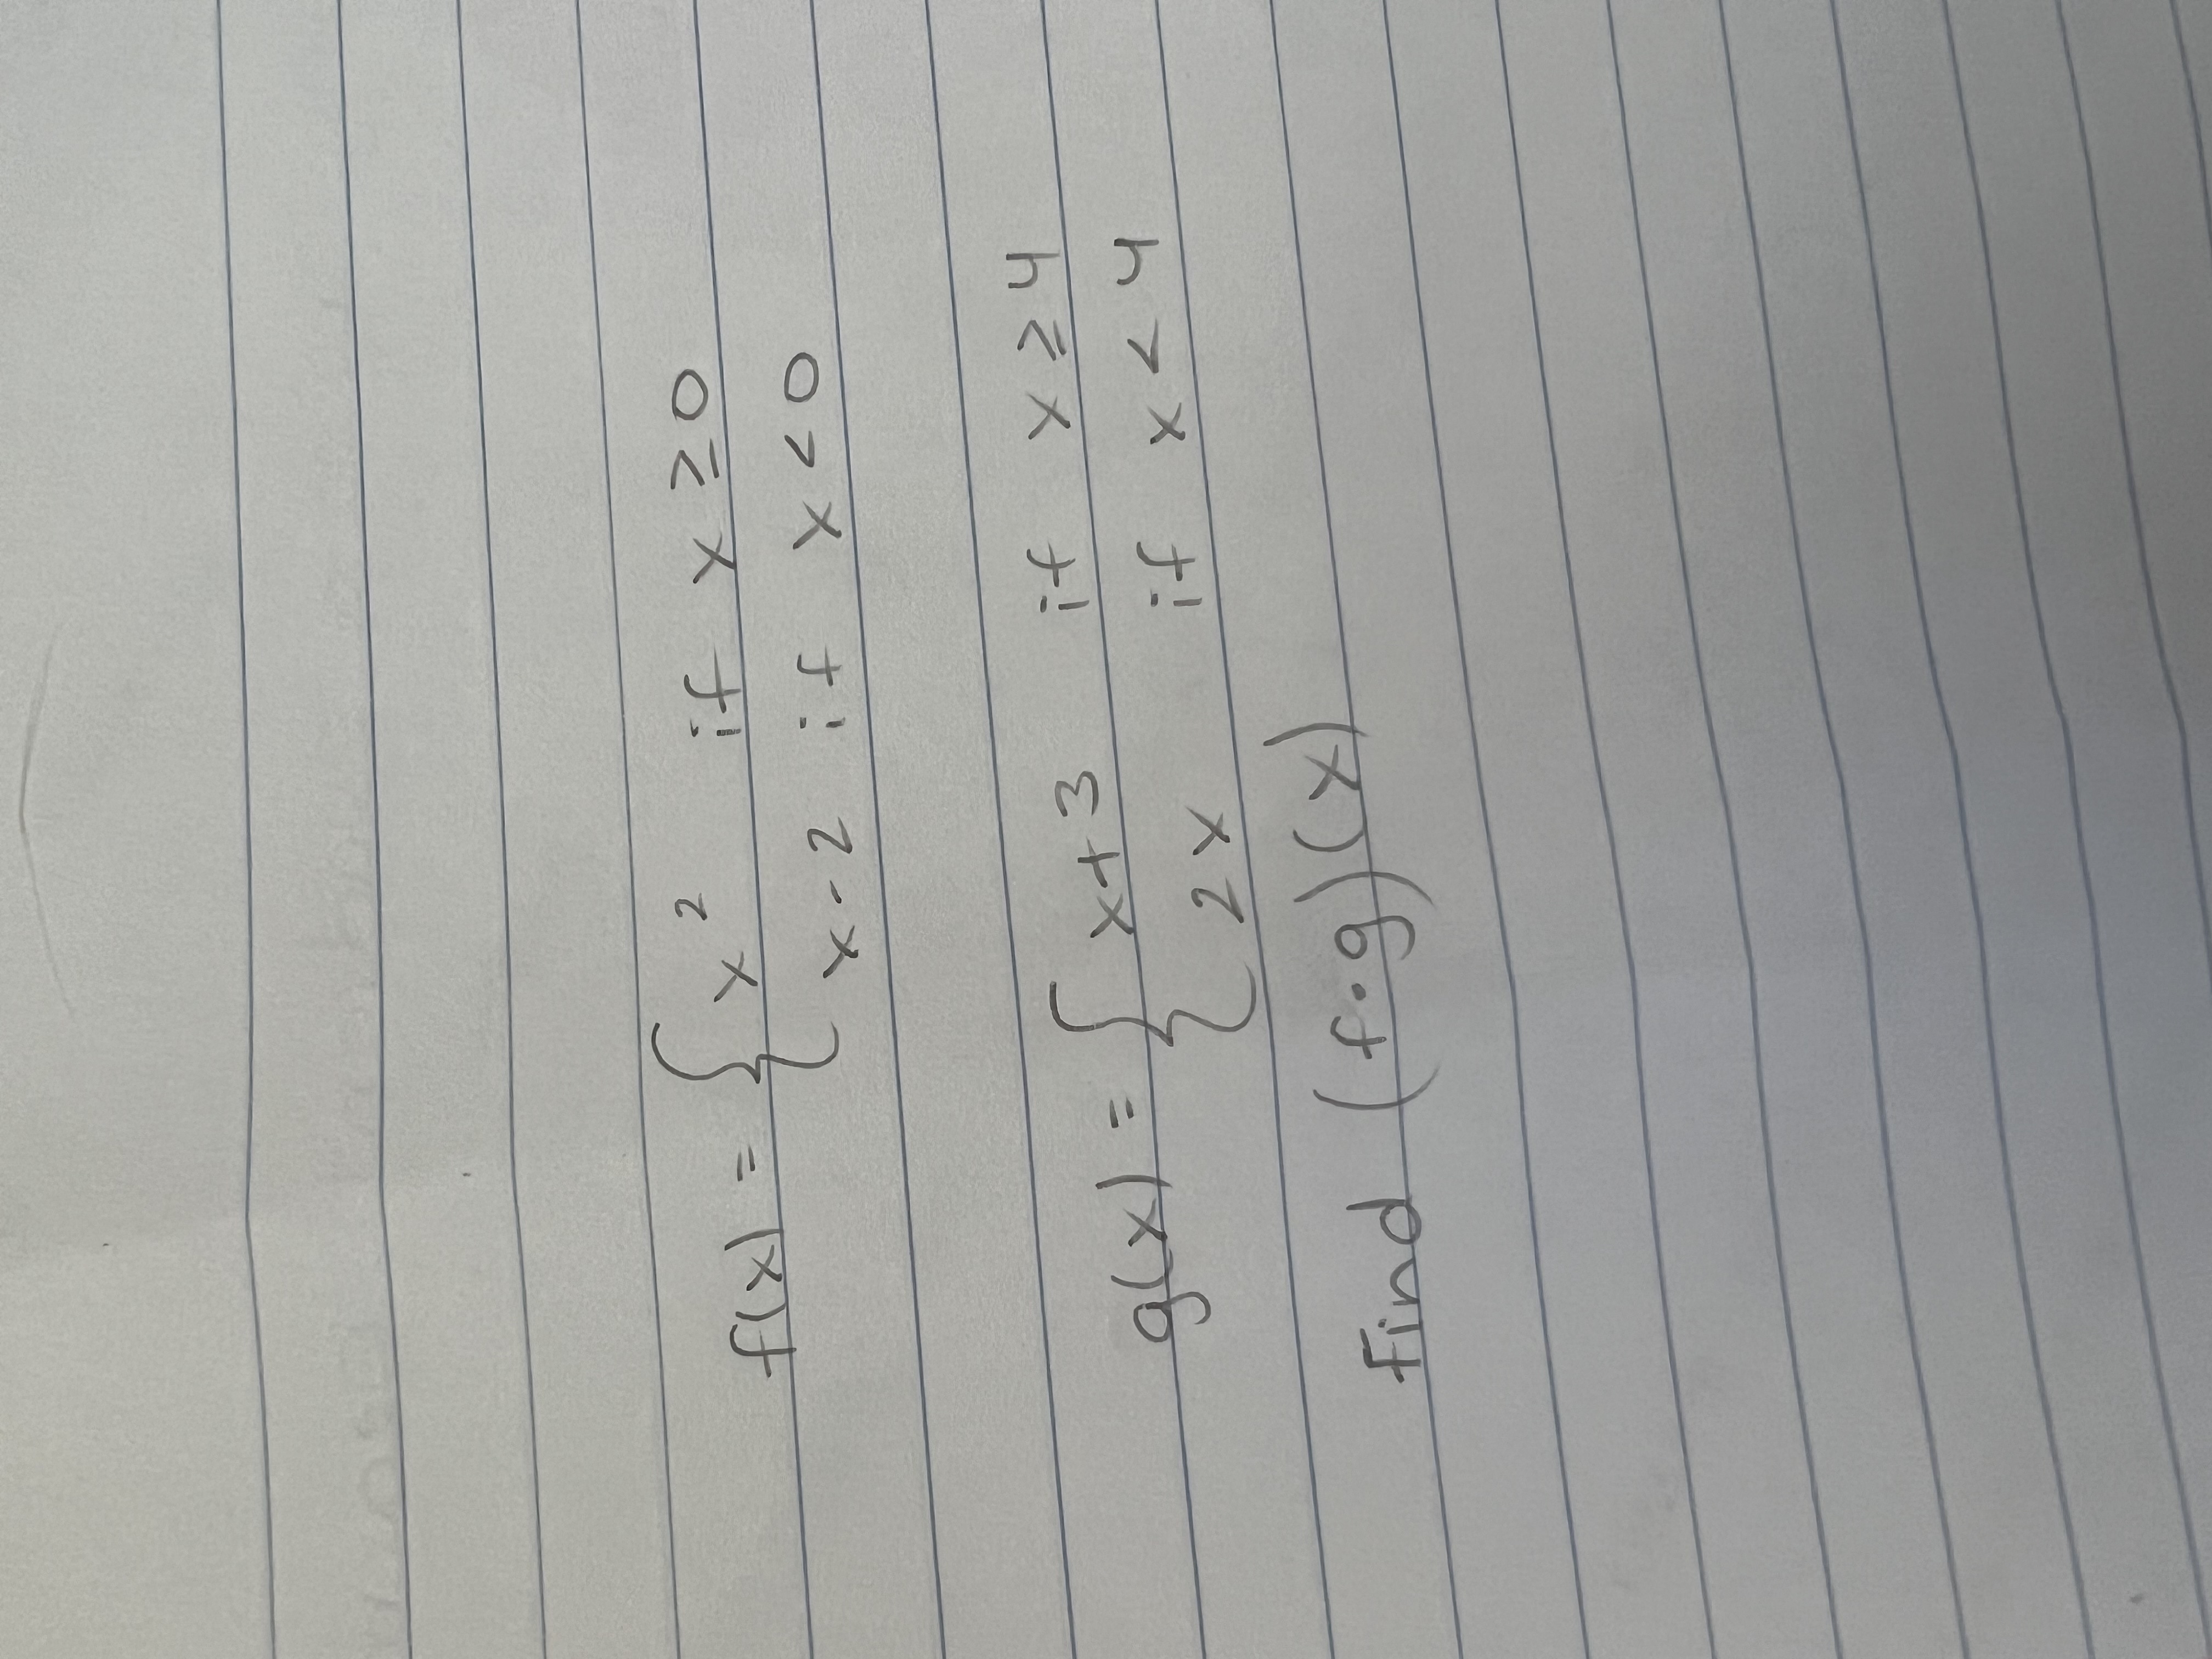 f(x) = { x² if x ≥ 0
x - 2 if x < 0
g(x) = { x+3 if x ≥ 4
2x if x < 4
Find (f·g)(x)